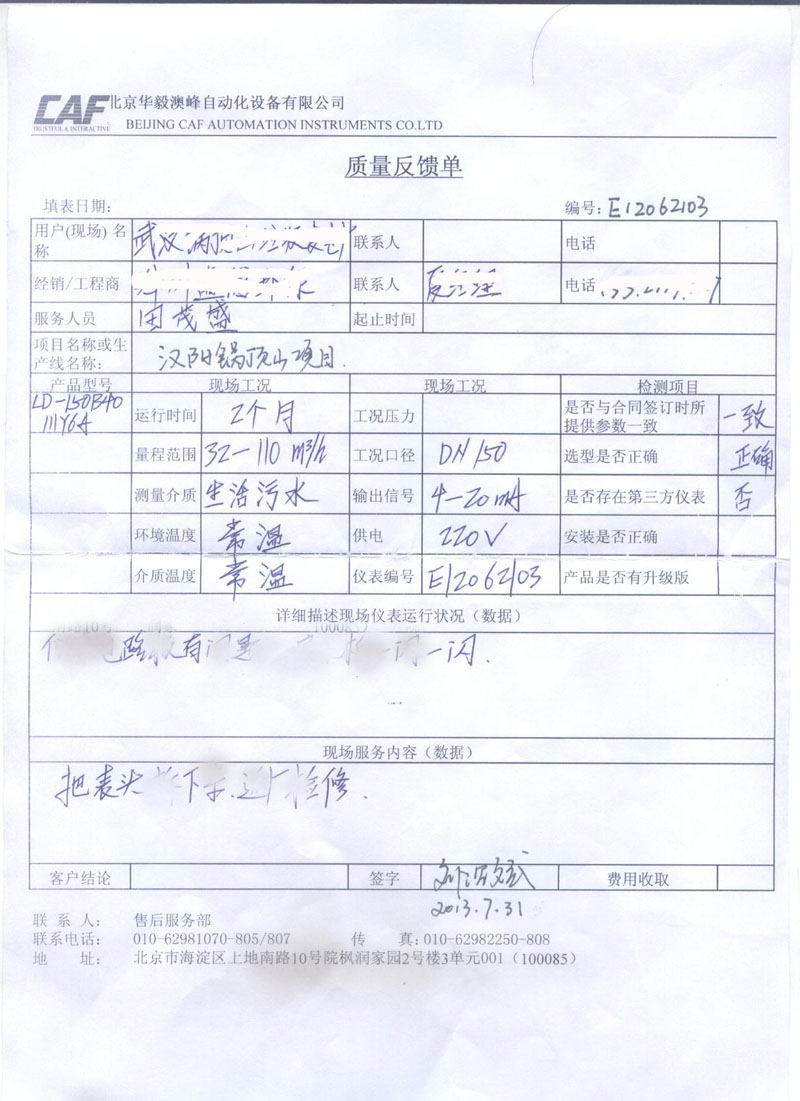 CAF 北京华毅澳峰自动化设备有限公司
TRUSTFUL & INTERACTIVE BEIJING CAF AUTOMATION INSTRUMENTS CO.LTD
质量反馈单
填表日期: 编号: E12062103
用户(现场)名称 武汉 联系人 电话
经销/工程商 联系人 电话
服务人员 田茂盛 起止时间
项目名称或生产线名称: 汉阳锅顶山项目.
产品型号 现场工况 现场工况 检测项目
LD-150B40 111Y6A 运行时间 2个月 工况压力 是否与合同签订时所提供参数一致 一致
量程范围 32-110 m³/h 工况口径 DN150 选型是否正确 正确
测量介质 生活污水 输出信号 4-20mA 是否存在第三方仪表 否
环境温度 常温 供电 220V 安装是否正确
介质温度 常温 仪表编号 E12062103 产品是否有升级版
详细描述现场仪表运行状况（数据）
路 有 一闪一闪.
现场服务内容（数据）
把表头 下 检修.
客户结论 签字 费用收取
2013.7.31
联 系 人: 售后服务部
联系电话: 010-62981070-805/807 传 真: 010-62982250-808
地 址: 北京市海淀区上地南路10号院枫润家园2号楼3单元001（100085）